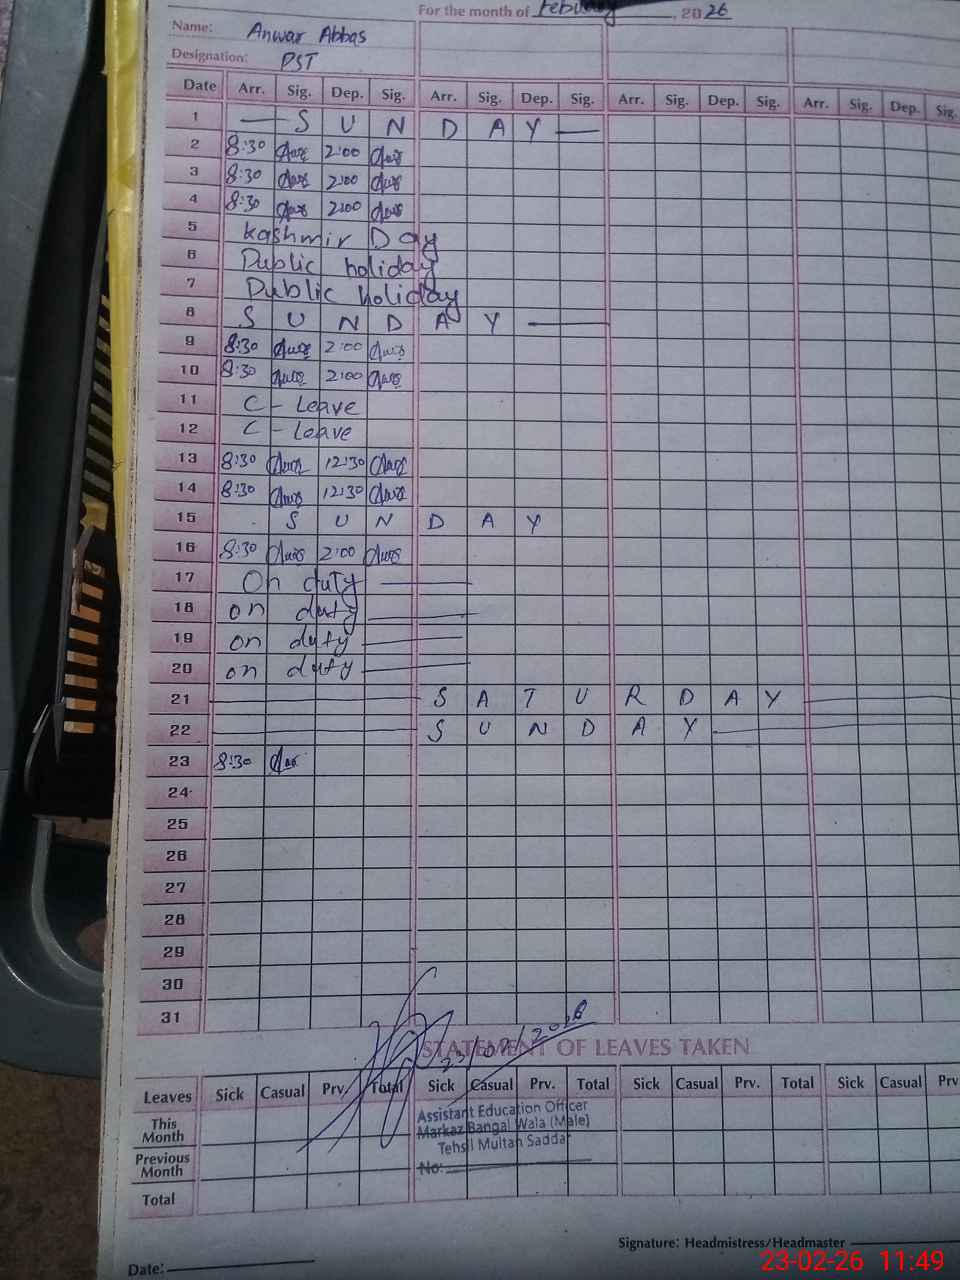 For the month of February, 2026
Name: Anwar Abbas
Designation: PST
Date Arr. Sig. Dep. Sig. Arr. Sig. Dep. Sig. Arr. Sig. Dep. Sig. Arr. Sig. Dep. Sig.
1 — S U N D A Y —
2 8:30 2:00
3 8:30 2:00
4 8:30 2:00
5 Kashmir Day
6 Public holiday
7 Public holiday
8 S U N D A Y —
9 8:30 2:00
10 8:30 2:00
11 C - Leave
12 C - Leave
13 8:30 12:30
14 8:30 12:30
15 S U N D A Y
16 8:30 2:00
17 On duty —
18 on duty —
19 on duty —
20 on duty —
21 — S A T U R D A Y —
22 — S U N D A Y —
23 8:30
24
25
26
27
28
29
30
31
23/02/2026
STATEMENT OF LEAVES TAKEN
Leaves Sick Casual Prv. Total Sick Casual Prv. Total Sick Casual Prv. Total Sick Casual Prv
This Month
Previous Month
Total
Assistant Education Officer
Markaz Bangal Wala (Male)
Tehsil Multan Saddar
No:
Signature: Headmistress/Headmaster
Date:
23-02-26 11:49